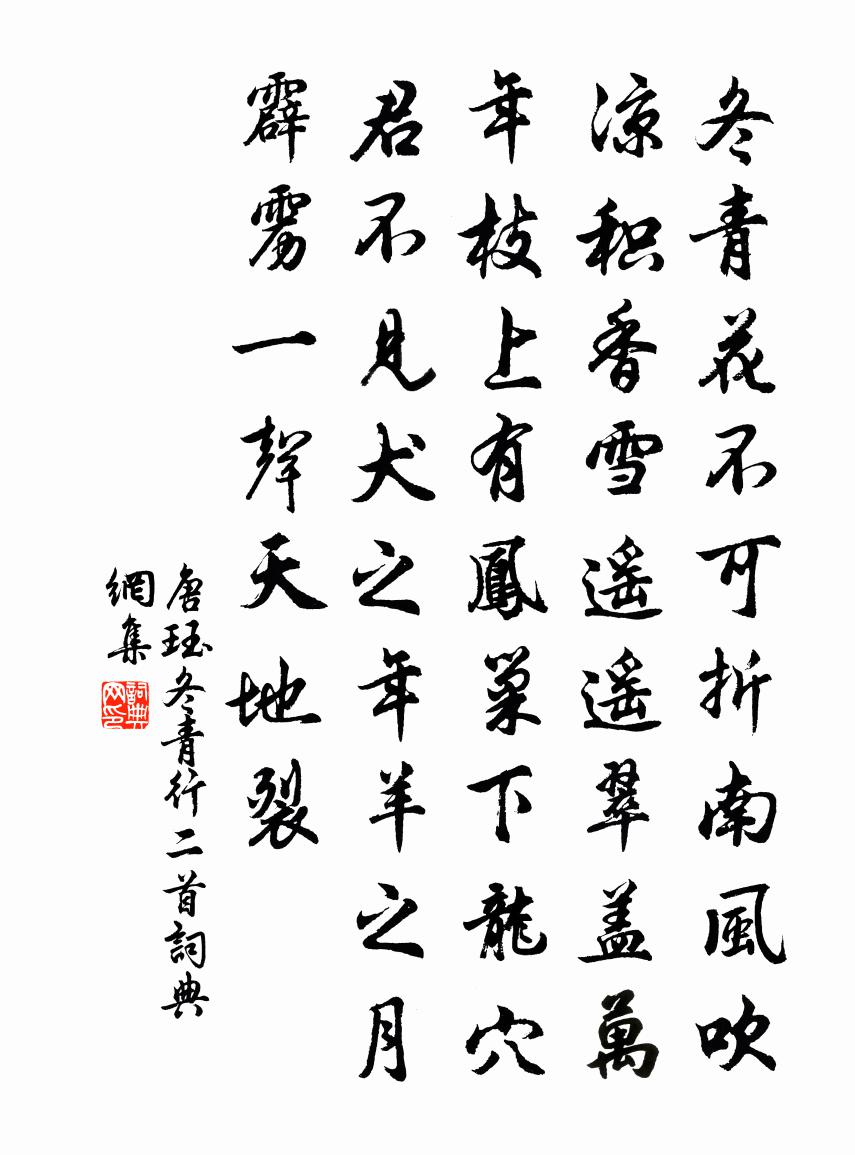 冬青花不可折南風吹
凉积香雪遥遥翠盖萬
年枝上有鳳巢下龍穴
君不見犬之年羊之月
霹雳一聲天地裂
唐珏冬青行二首詞典
網集
詞典
网印